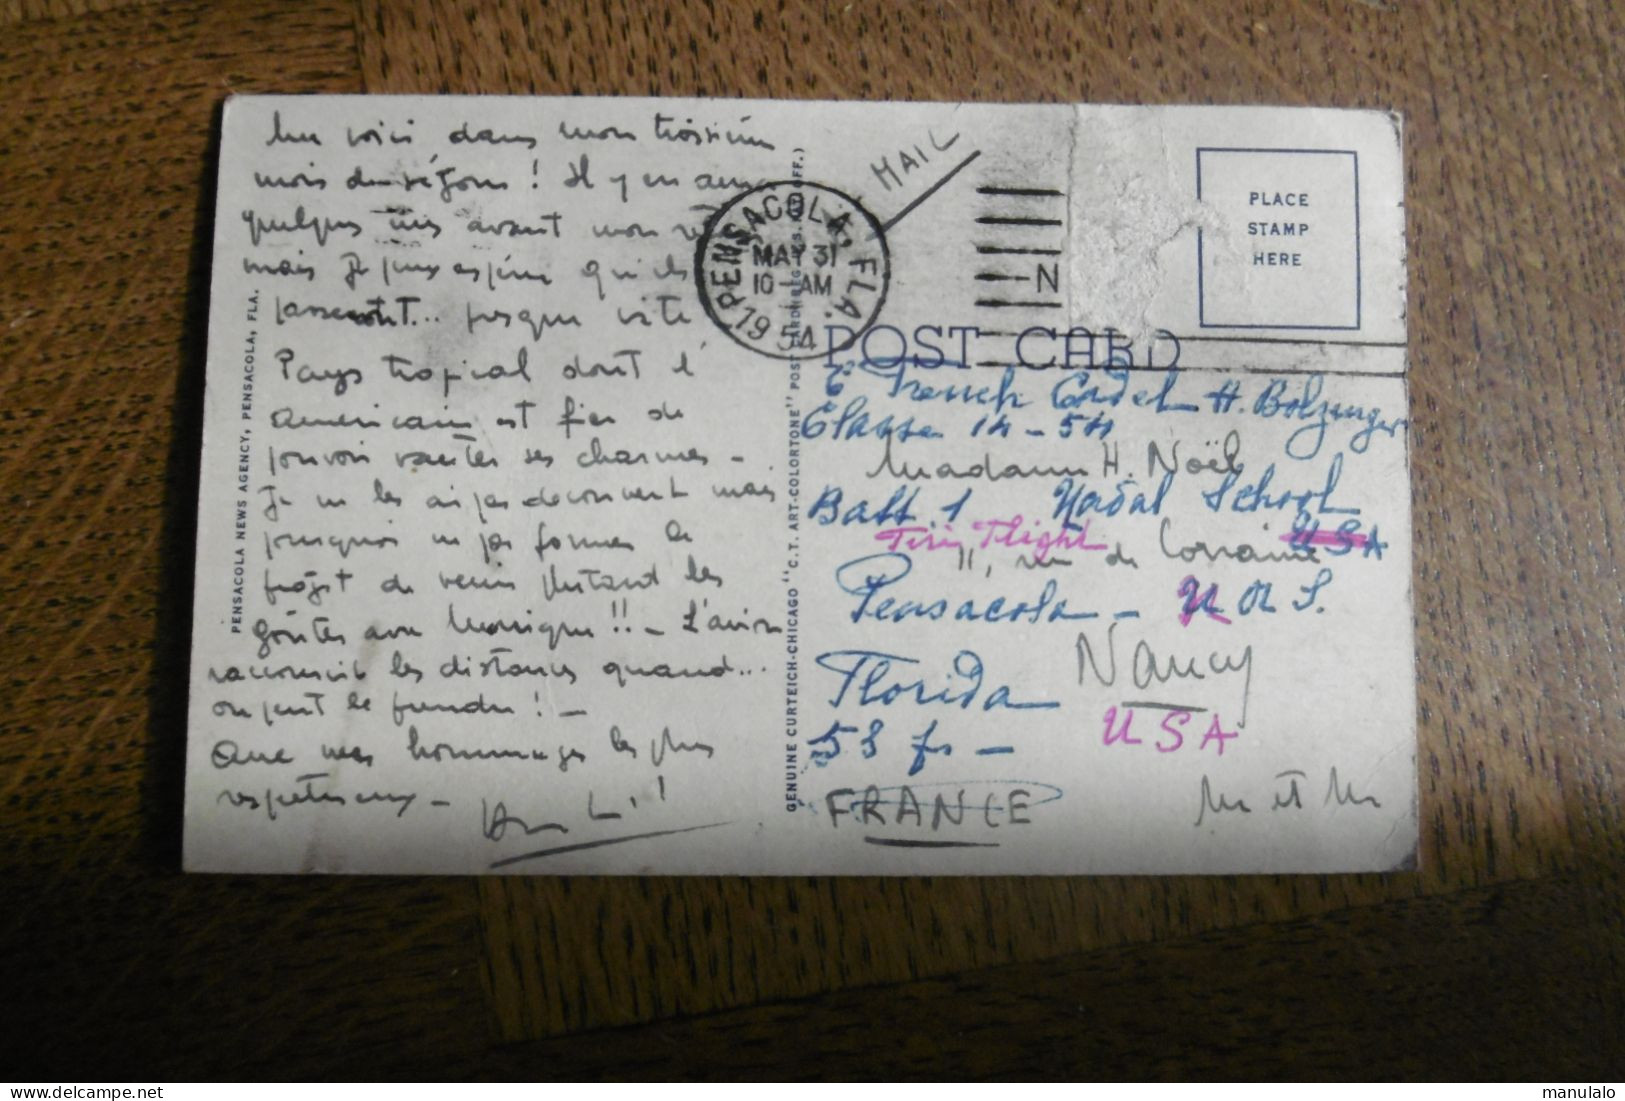 Me voici dans mon troisième
mois de séjour ! Il y en aura
quelques uns avant mon
mais je puis espérer qu'ils
passeront... presque vite
Pays tropical dont l'
américain est fier de
pouvoir vanter ses charmes -
Je ne les ai pas découvert mais
pourquoi ne pas former le
projet de venir les
goûter avec Monique !! - L'avion
raccourcit les distances quand...
on peut le prendre ! -
Que mes hommages les plus
respectueux -
PENSACOLA NEWS AGENCY, PENSACOLA, FLA.
GENUINE CURTEICH-CHICAGO "C.T. ART-COLORTONE" POST CARD (REG. U.S. OFF.)
PENSACOLA, FLA.
MAY 31
10-AM
1954
MAIL
N
PLACE
STAMP
HERE
POST CARD
French Cadet H. Bolzinger
Classe 14-54
Madame H. Noël
Batt 1 Naval School
USA
Flight
11, rue de Lorraine
Pensacola -
Florida
Nancy
53 fs -
USA
FRANCE
M et M
manulalo